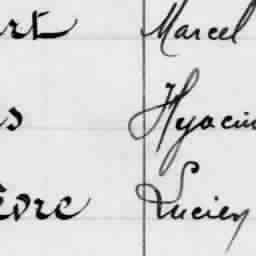 rt Marcel
s Hyacin
èvre Lucien